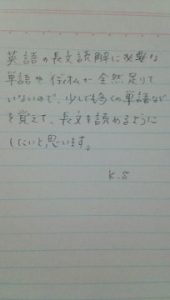 英語の長文読解に必要な
単語やイディオムが全然足りて
いないので、少しでも多くの単語など
を覚えて、長文を読めるように
したいと思います。
K.S